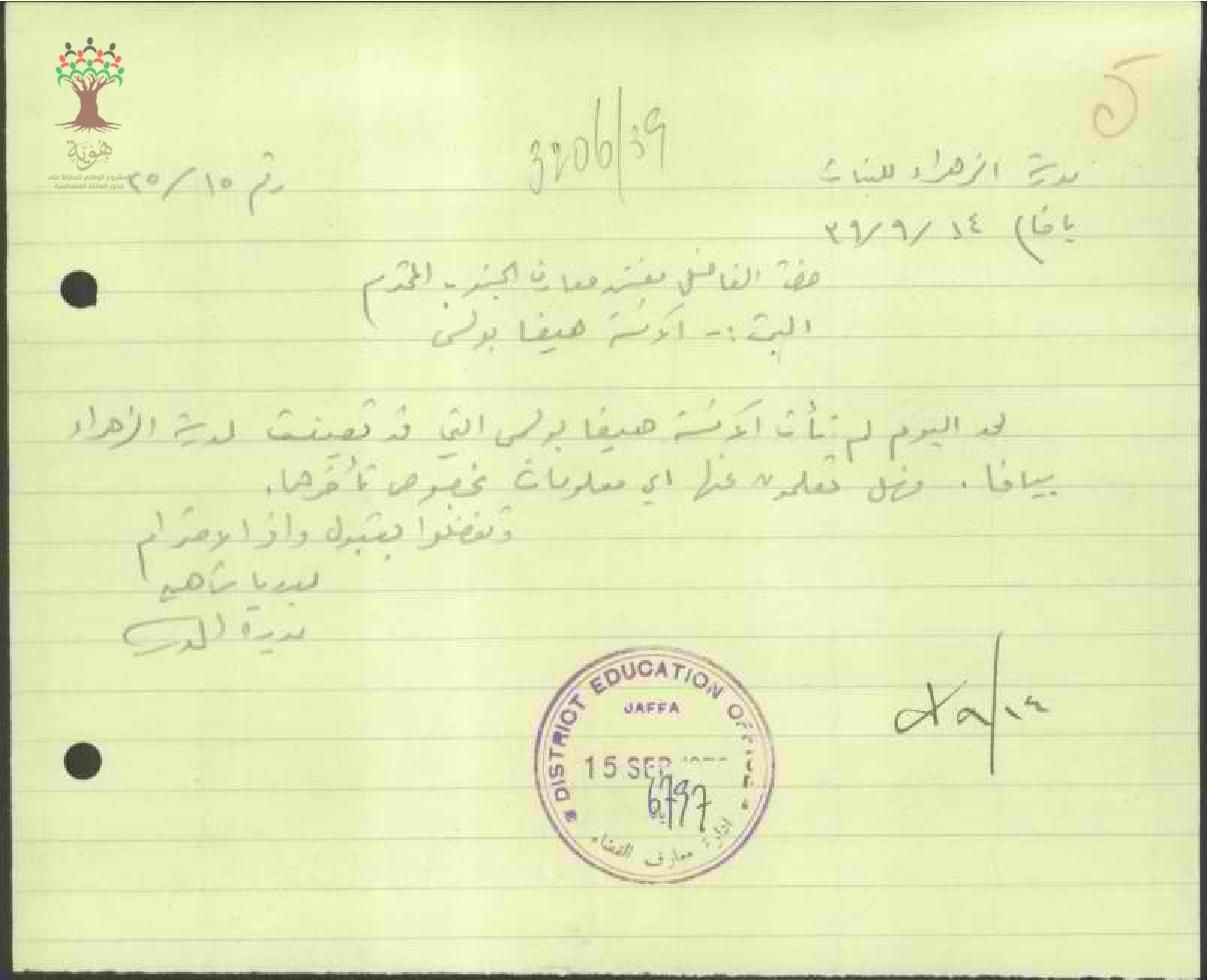 هوية
المشروع الوطني للحفاظ على
جذور العائلة الفلسطينية
3206/39
مدرسة الزهراء للبنات
رقم ٢٥/١٥
يافا في ١٤/٩/٣٩
حضرة الفاضل مفتش معارف الجنوب المحترم
البحث :- الآنسة هيفا بولس
لحد اليوم لم تأت الآنسة هيفا بولس التي قد تعينت لمدرسة الزهراء
بيافا. فهل تعلمون عنها اي معلومات بخصوص تأخرها.
وتفضلوا بقبول وافر الاحترام
شاهين
مديرة المدرسة
DISTRICT EDUCATION OFFICE
JAFFA
15 SEP
6797
ادارة معارف القضاء